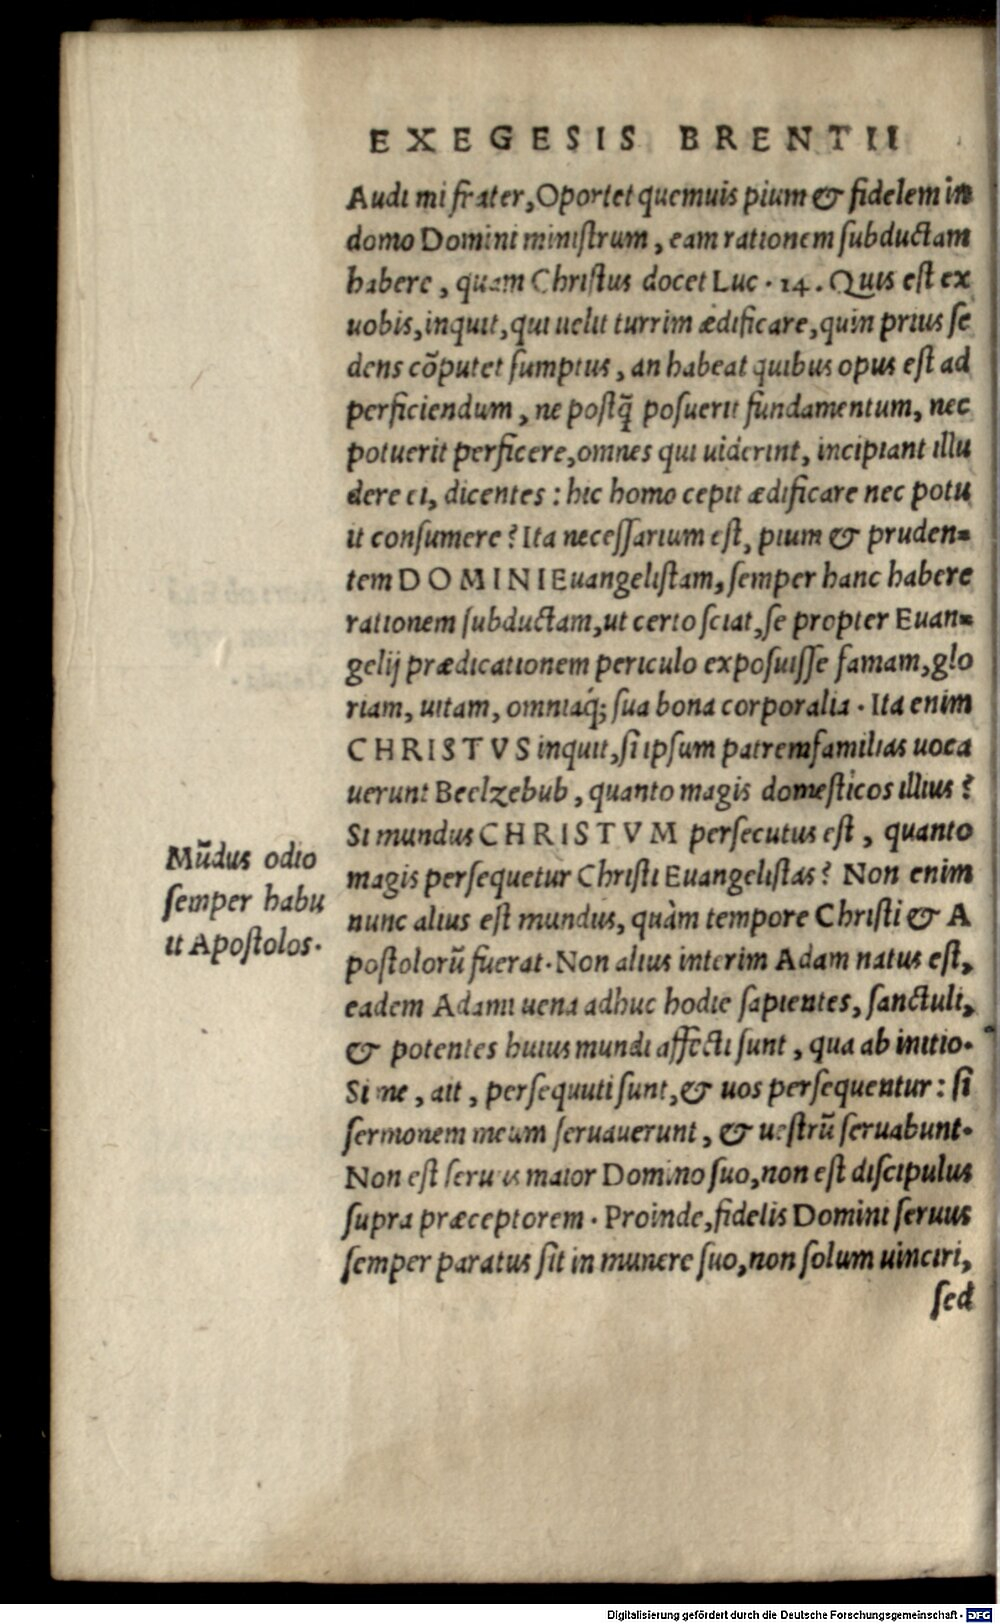 EXEGESIS BRENTII
Audi mi frater, Oportet quemuis pium & fidelem in
domo Domini ministrum, eam rationem subductam
habere, quam Christus docet Luc. 14. Quis est ex
uobis, inquit, qui uelit turrim ædificare, quin prius se
dens cõputet sumptus, an habeat quibus opus est ad
perficiendum, ne postq̃ posuerit fundamentum, nec
potuerit perficere, omnes qui uiderint, incipiant illu
dere ei, dicentes: hic homo cepit ædificare nec potu
it consumere? Ita necessarium est, pium & pruden=
tem DOMINI Euangelistam, semper hanc habere
rationem subductam, ut certo sciat, se propter Euan=
gelij prædicationem periculo exposuisse famam, glo
riam, uitam, omniaq́; sua bona corporalia. Ita enim
CHRISTVS inquit, si ipsum patremfamilias uoca
uerunt Beelzebub, quanto magis domesticos illius?
Si mundus CHRISTVM persecutus est, quanto
magis persequetur Christi Euangelistas? Non enim
nunc alius est mundus, quàm tempore Christi & A
postolorũ fuerat. Non alius interim Adam natus est,
eadem Adami uena adhuc hodie sapientes, sanctuli,
& potentes huius mundi affecti sunt, qua ab initio.
Si me, ait, persequuti sunt, & uos persequentur: si
sermonem meum seruauerunt, & uestrũ seruabunt.
Non est seruus maior Domino suo, non est discipulus
supra præceptorem. Proinde, fidelis Domini seruus
semper paratus sit in munere suo, non solum uinciri,
sed
Mũdus odio
semper habu
it Apostolos.
Digitalisierung gefördert durch die Deutsche Forschungsgemeinschaft - DFG